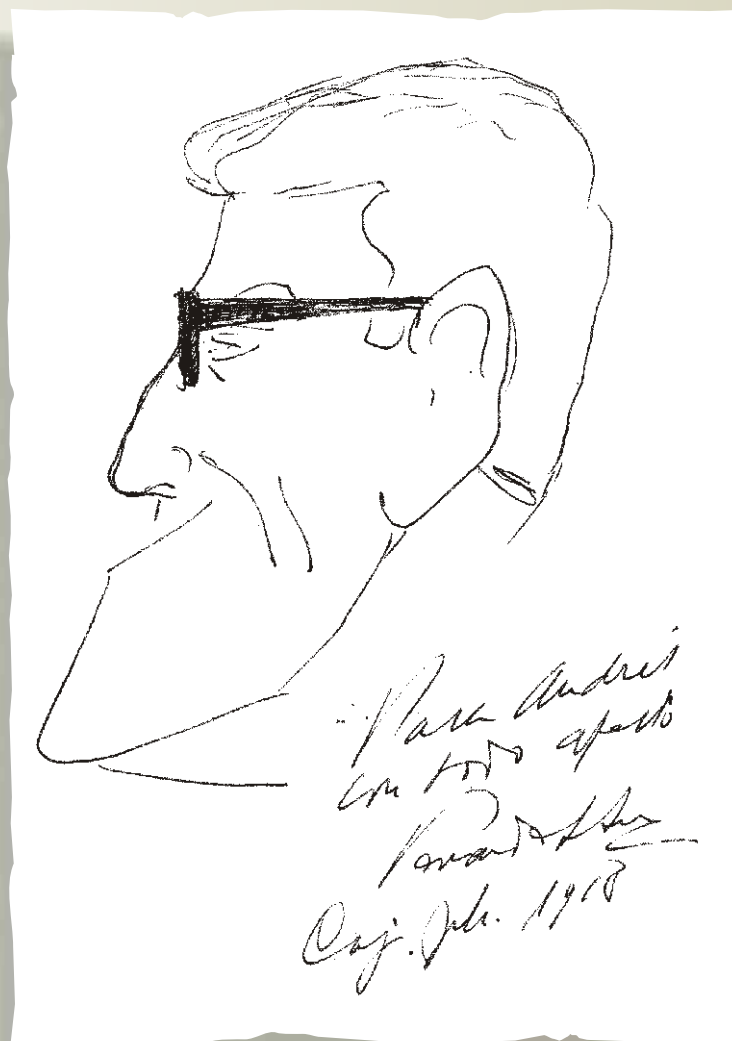 Para Andrés
con todo afecto
Caj. Feb. 1918